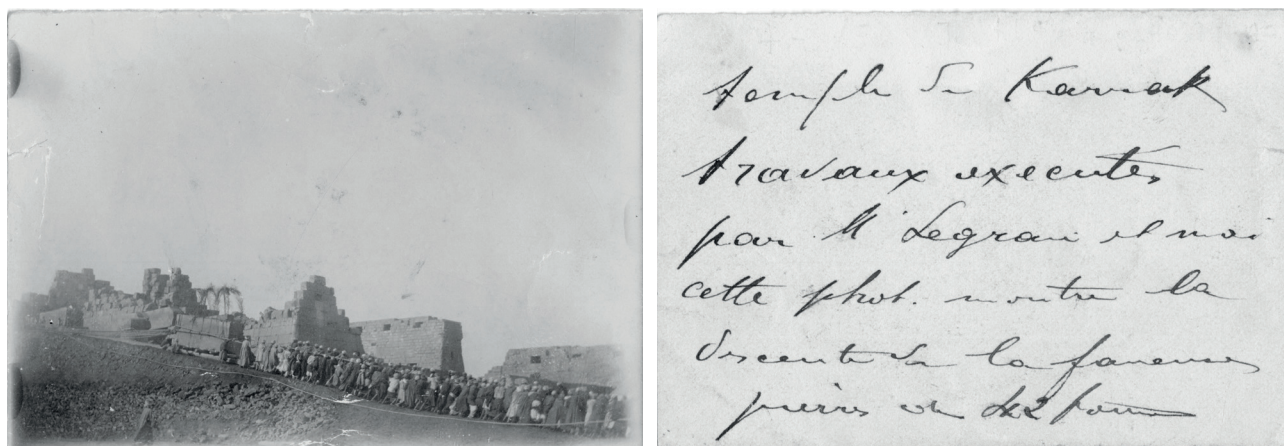 temple de Karnak
travaux executés
par Mr Legrain et moi
cette phot. montre la
descente de la fameuse
pierre de tonnes